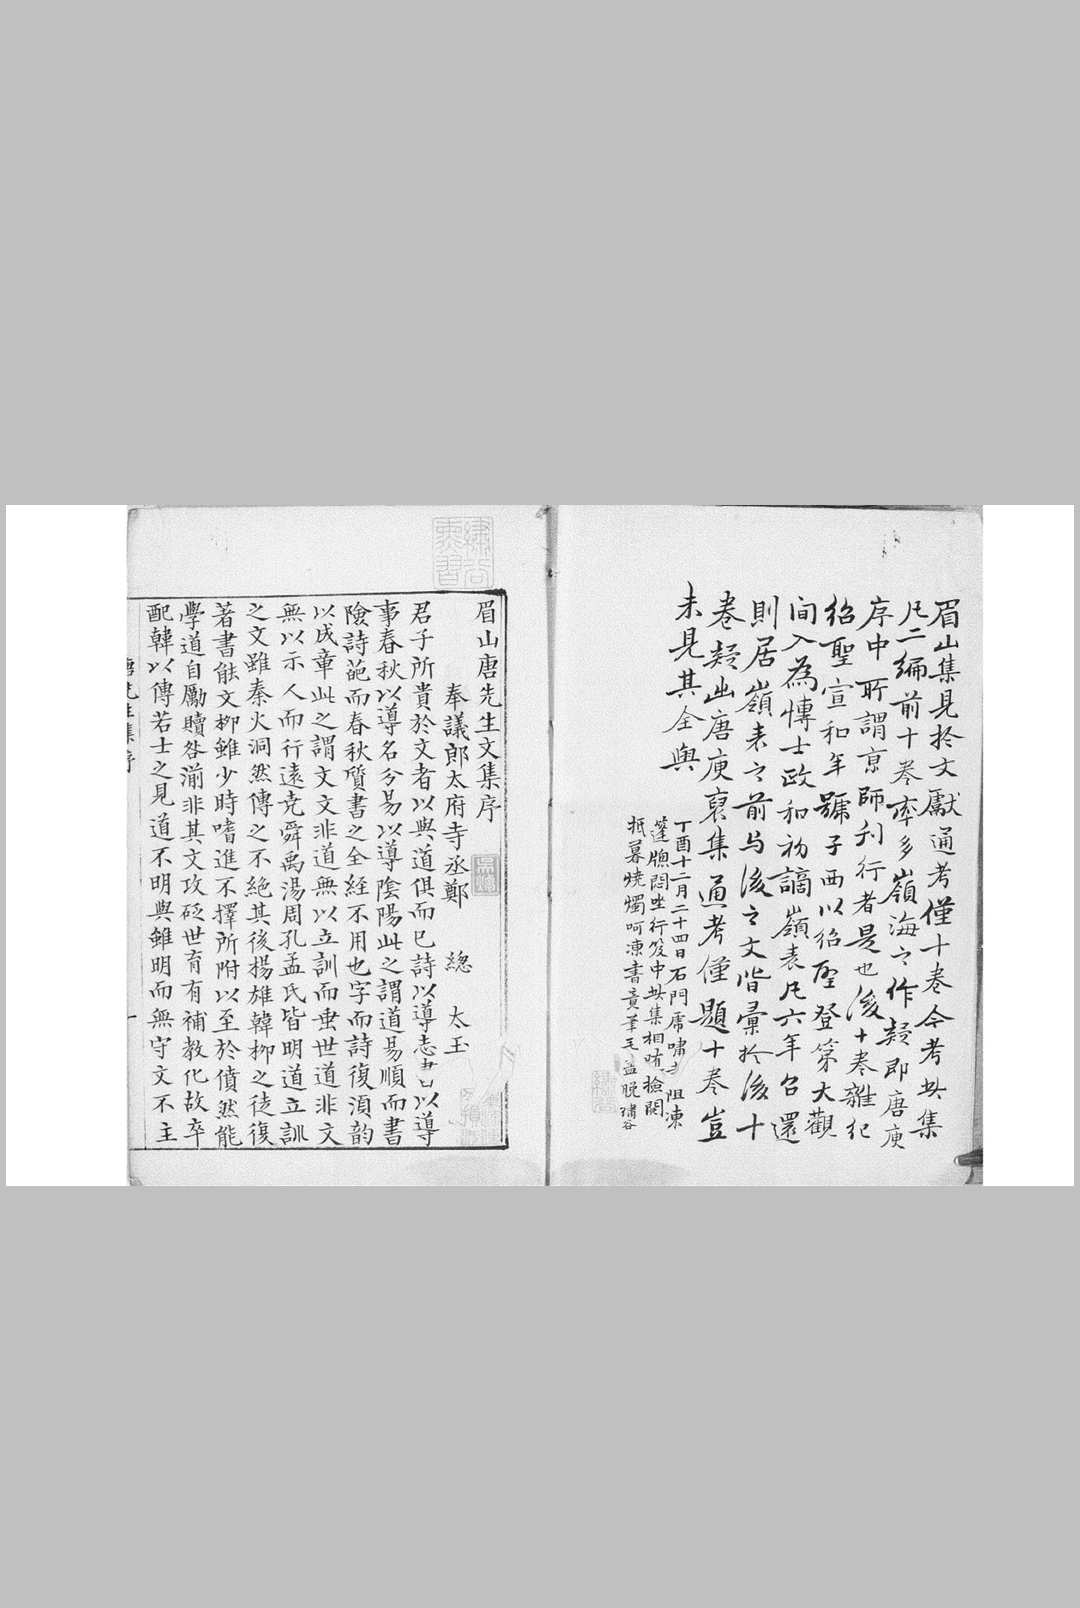 眉山集見於文獻通考僅十卷今考此集
凡二編前十卷率多嶺海之作疑即唐庚
序中所謂京師刋行者是也後十卷雜紀
紹聖宣和年號子西以紹聖登第大觀
間入為博士政和初謫嶺表凡六年召還
則居嶺表之前与後之文皆彙於後十
卷疑出唐庚裒集通考僅題十卷豈
未見其全與
丁酉十二月二十四日石門席嘯 阻凍
篷牕悶坐行笈中此集相晭撿閱
抵暮燒燭呵凍書竟筆毛益脫繡谷
繡谷
熏習
眉山唐先生文集序
奉議郎太府寺丞鄭 總 太玉
君子所貴於文者以與道俱而已詩以導志書以導
事春秋以導名分易以導陰陽此之謂道易順而書
險詩葩而春秋質書之全經不用也字而詩復湏韵
以成章此之謂文文非道無以立訓而垂世道非文
無以示人而行遠堯舜禹湯周孔孟氏皆明道立訓
之文雖秦火洞然傳之不絕其後揚雄韓柳之徒復
著書能文柳雖少時嗜進不擇所附以至於僨然能
學道自勵贖咎湔非其文攻砭世育有補教化故卒
配韓以傳若士之見道不明與雖明而無守文不主
唐先生集序
一